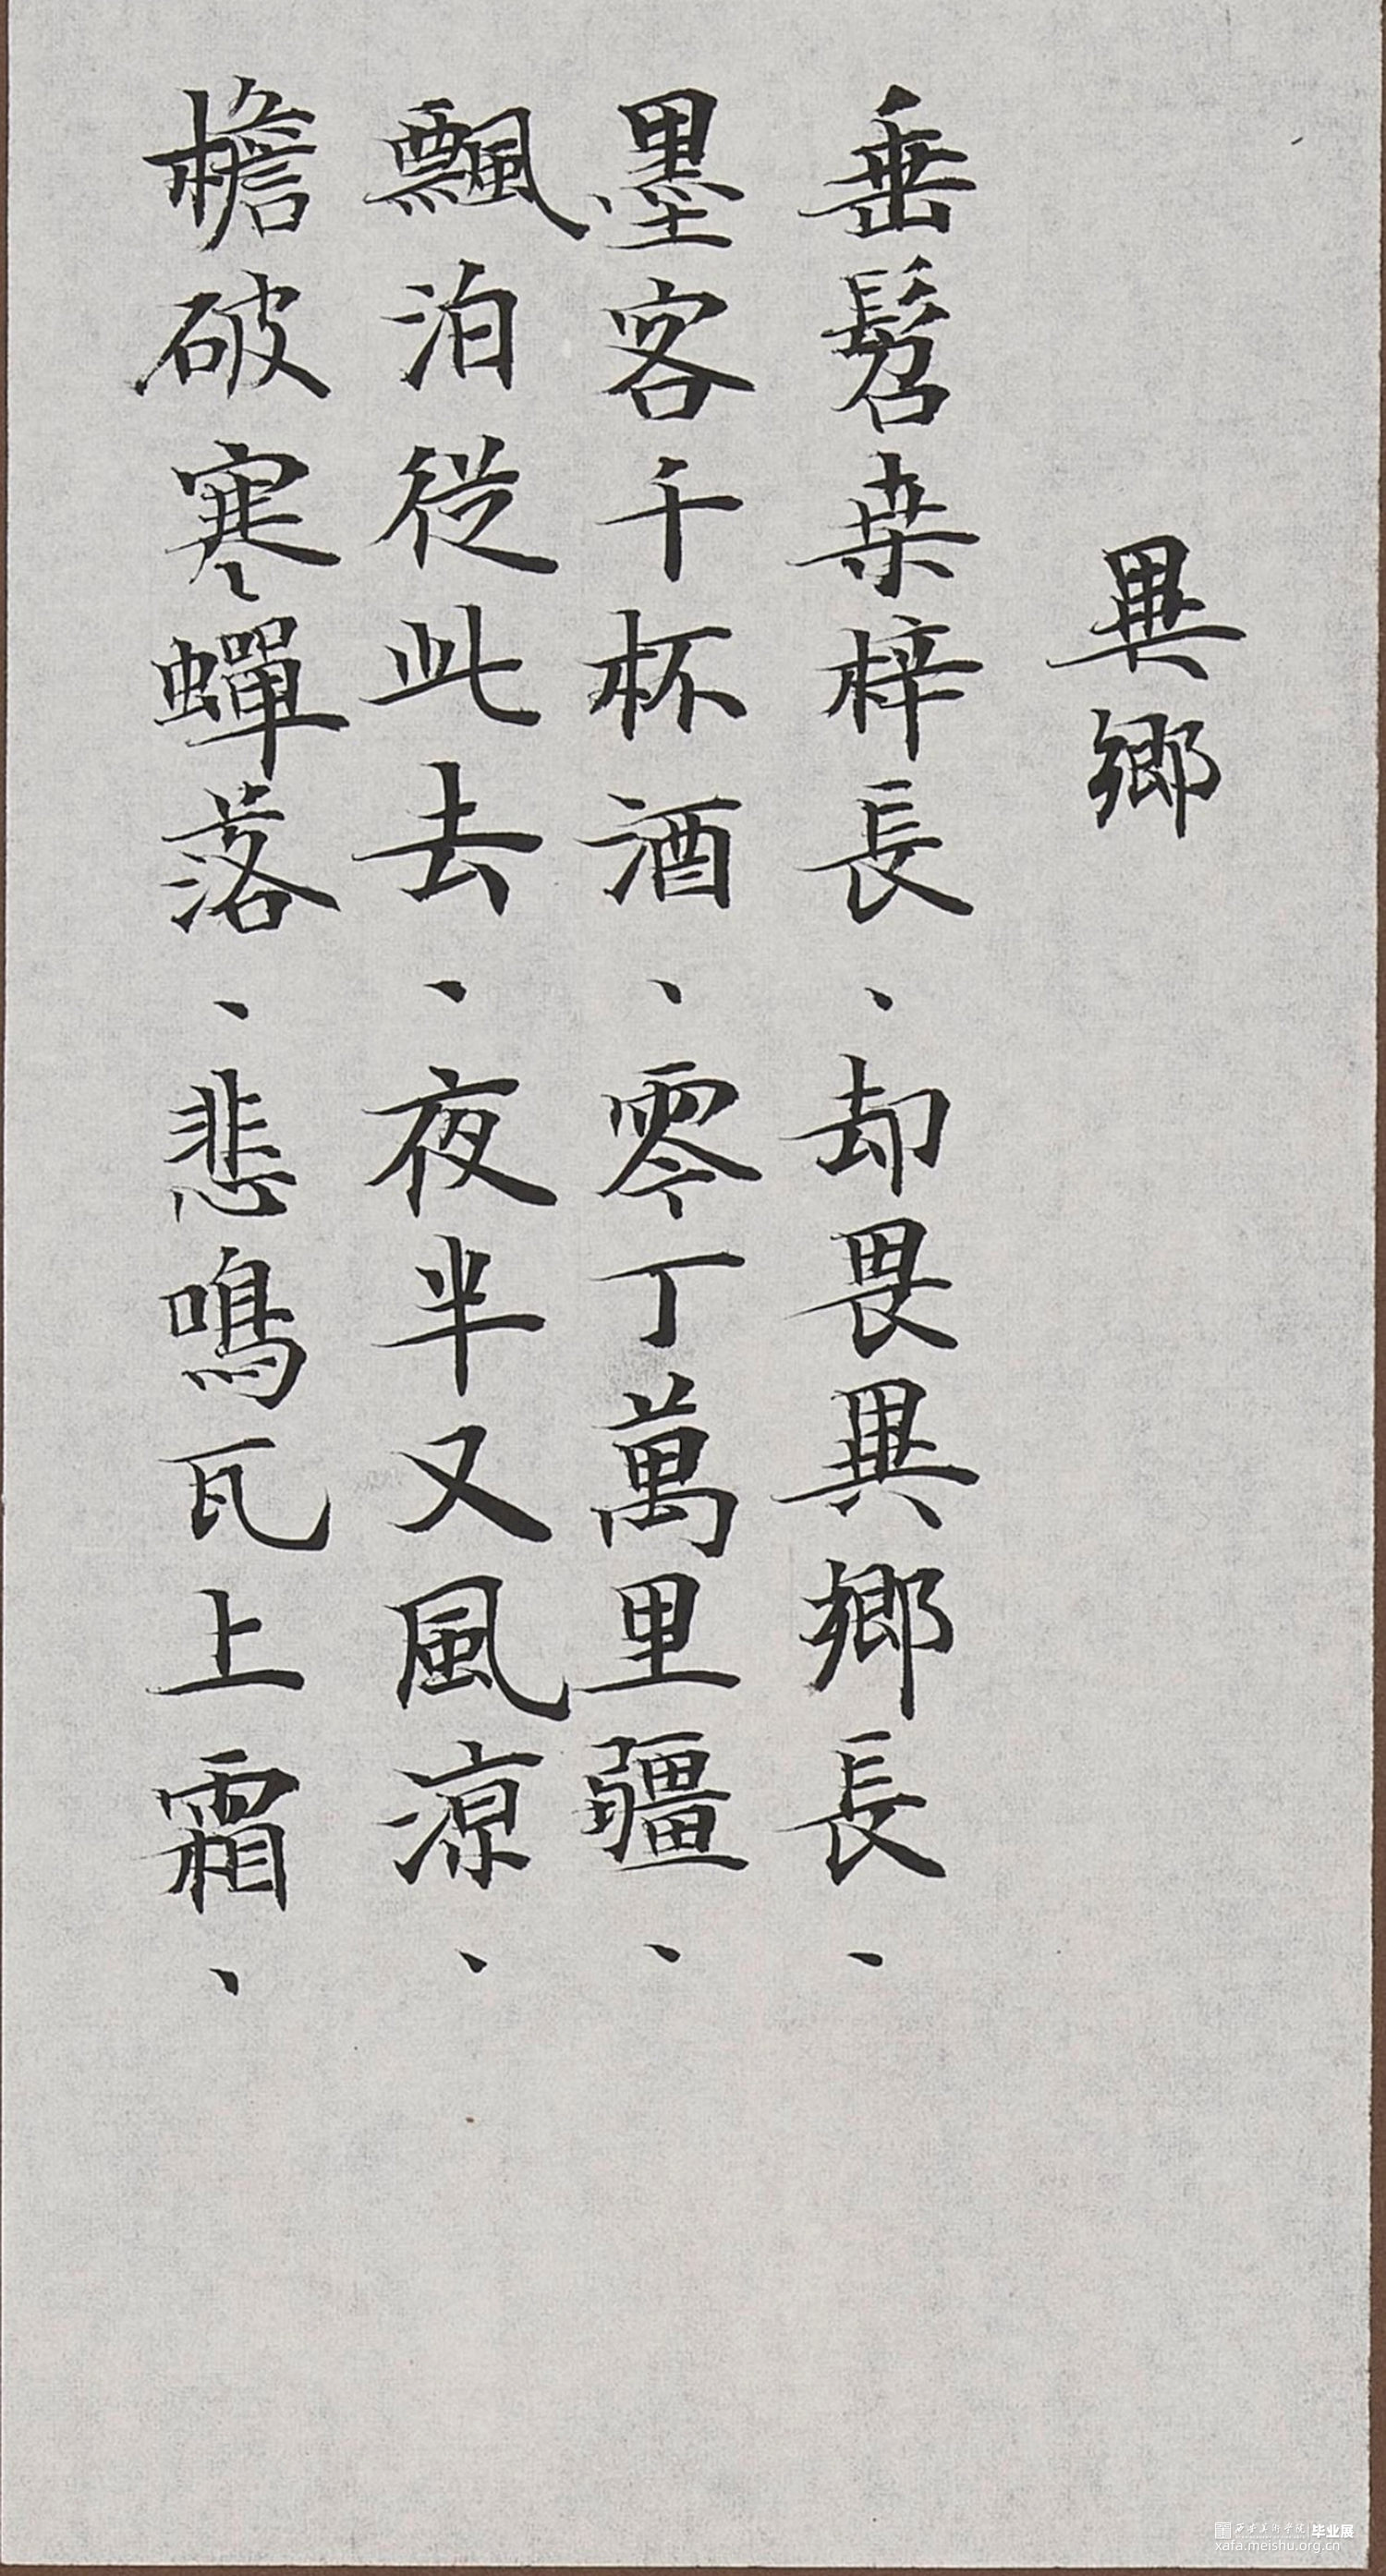 異鄉
垂髫桒梓長、却畏異鄉長、
墨客千杯酒、零丁萬里疆、
飄泊從此去、夜半又風涼、
檐破寒蟬落、悲鳴瓦上霜、
西安美術学院 毕业展
xafa.meishu.org.cn